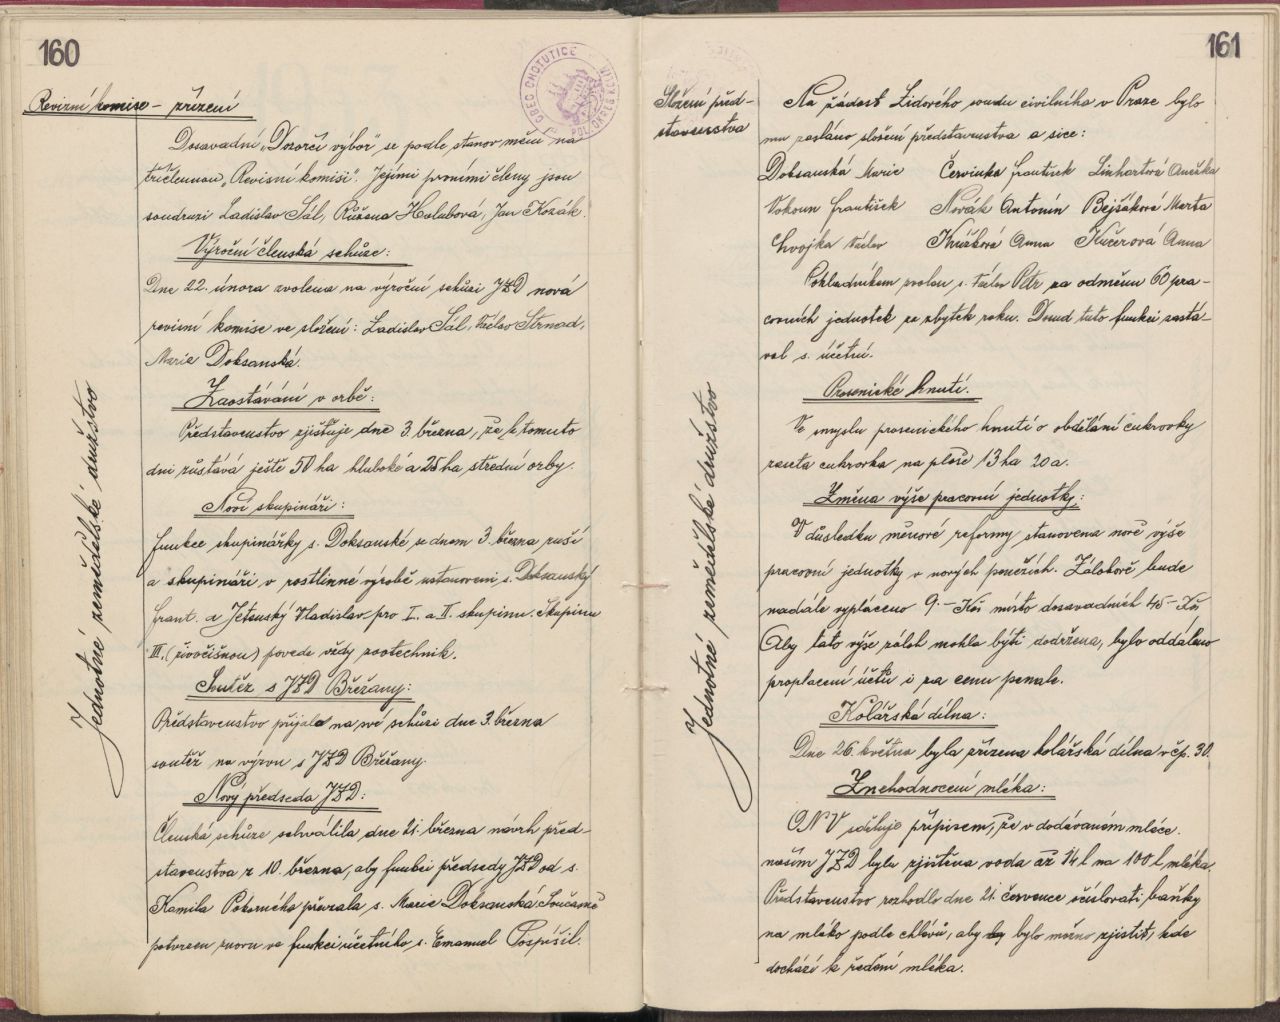 160
Revizní komise – zřízení
Dosavadní „Dozorčí výbor" se podle stanov mění na
tříčlennou „Revisní komisi". Jejími prvními členy jsou
soudruzi Ladislav Sál, Růžena Holubová, Jan Kozák.
Výroční členská schůze:
Dne 22. února zvolena na výroční schůzi JZD nová
revisní komise ve složení: Ladislav Sál, Václav Strnad,
Marie Doksanská.
Zaostávání v orbě:
Představenstvo zjišťuje dne 3. března, že k tomuto
dni zůstává ještě 50 ha hluboké a 25 ha střední orby.
Noví skupináři:
Funkce skupinářky s. Doksanské se dnem 3. března ruší
a skupináři v rostlinné výrobě ustanoveni s. Doksanský
Frant. a Jetenský Vladislav pro I. a II. skupinu. Skupinu
III. (živočišnou) povede vždy zootechnik.
Soutěž s JZD Břežany:
Představenstvo přijalo na své schůzi dne 3. března
soutěž na výzvu s JZD Břežany.
Nový předseda JZD:
Členská schůze schválila dne 21. března návrh před-
stavenstva z 10. března, aby funkci předsedy JZD od s.
Kamila Pokorného převzala s. Marie Doksanská. Současně
potvrzen znovu ve funkci účetního s. Emanuel Pospíšil.
Jednotné zemědělské družstvo
OBEC CHOTUTICE
161
Složení před-
stavenstva
Na žádost Lidového soudu civilního v Praze bylo
mu zasláno složení představenstva a sice:
Doksanská Marie Červinka František Linhartová Anežka
Vokoun František Novák Antonín Bejšáková Marta
Chvojka Václav Knížková Anna Kučerová Anna
Pokladníkem zvolen s. Václav Petr za odměnu 60 pra-
covních jednotek za zbytek roku. Dosud tuto funkci zastá-
val s. účetní.
Prosenické hnutí.
Ve smyslu prosenického hnutí o obdělání cukrovky
zaseta cukrovka na ploše 13 ha 20 a.
Změna výše pracovní jednotky:
V důsledku měnové reformy stanovena nově výše
pracovní jednotky v nových penězích. Zálohově bude
nadále vypláceno 9.– Kčs místo dosavadních 45 – Kčs
Aby tato výše záloh mohla býti dodržena, bylo oddáleno
proplacení účtů i za cenu penale.
Kolářská dílna:
Dne 26. května byla zřízena kolářská dílna v čp. 30.
Znehodnocení mléka:
ONV sděluje přípisem, že v dodávaném mléce
naším JZD byla zjištěna voda až 14 l na 100 l mléka.
Představenstvo rozhodlo dne 21. července očíslovati baňky
na mléko podle chlévů, aby bylo možno zjistit, kde
dochází k ředění mléka.
Jednotné zemědělské družstvo